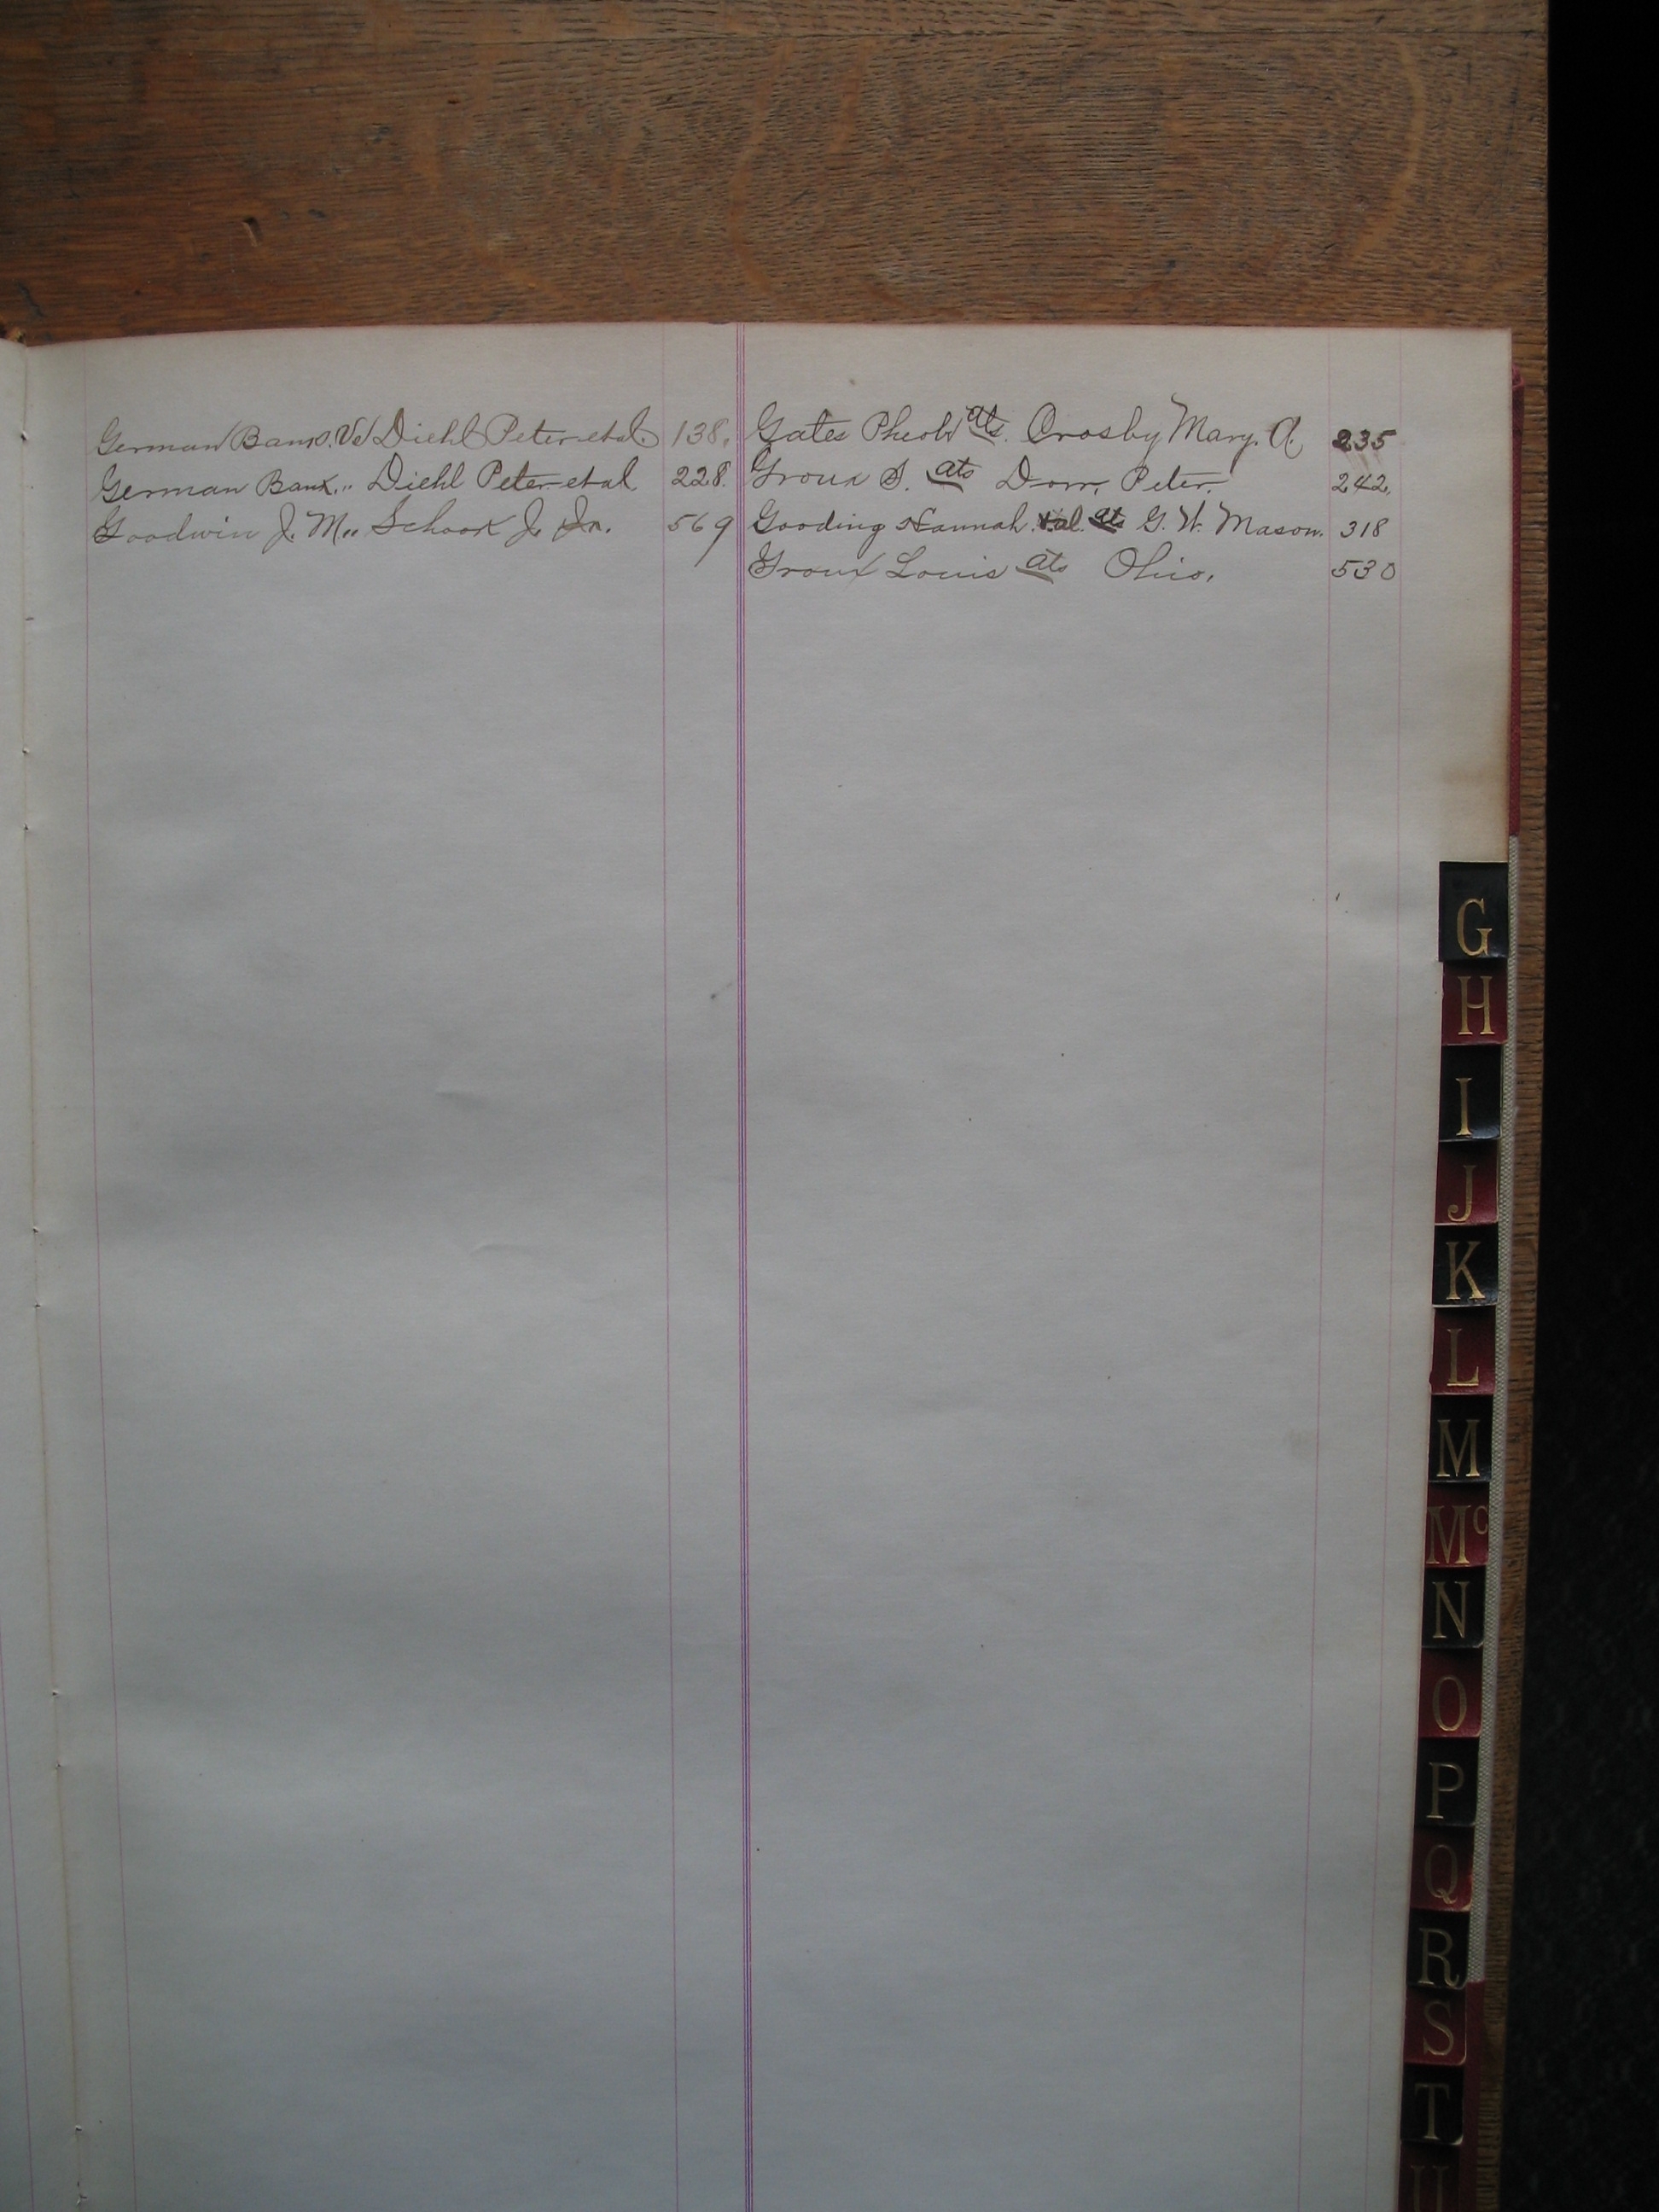 German Bank. Vs Diehl Peter et al. 138.
German Bank. " Diehl Peter et al 228.
Goodwin J. M. " Schook J. Jr. 569
Gates Pheobe ats. Crosby Mary. A. 235
Groux S. ats Dorr, Peter. 242.
Gooding Hannah. et al. ats G. W. Mason. 318
Groux Louis ats Ohio. 530
G
H
I
J
K
L
M
Mc
N
O
P
Q
R
S
T
U